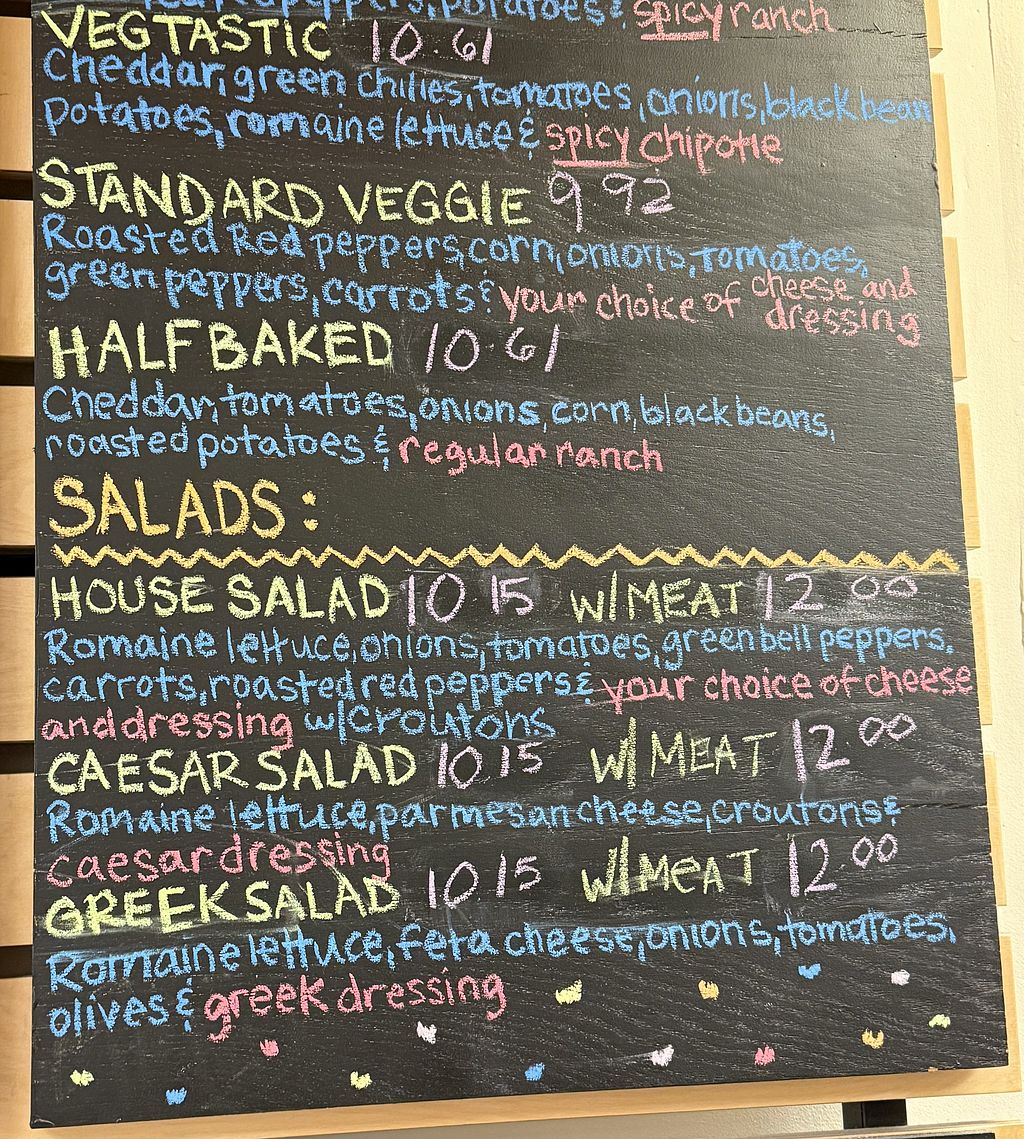 red peppers, potatoes & spicy ranch
VEGTASTIC 10.61
Cheddar, green chilies, tomatoes, onions, black bean
potatoes, romaine lettuce & spicy chipotle
STANDARD VEGGIE 9.92
Roasted Red peppers, corn, onions, tomatoes,
green peppers, carrots & your choice of cheese and
dressing
HALF BAKED 10.61
Cheddar, tomatoes, onions, corn, black beans,
roasted potatoes & regular ranch
SALADS:
HOUSE SALAD 10.15 W/MEAT 12.00
Romaine lettuce, onions, tomatoes, green bell peppers,
carrots, roasted red peppers & your choice of cheese
and dressing w/croutons
CAESAR SALAD 10.15 W/ MEAT 12.00
Romaine lettuce, parmesan cheese, croutons &
caesar dressing
GREEK SALAD 10.15 W/MEAT 12.00
Romaine lettuce, feta cheese, onions, tomatoes,
olives & greek dressing